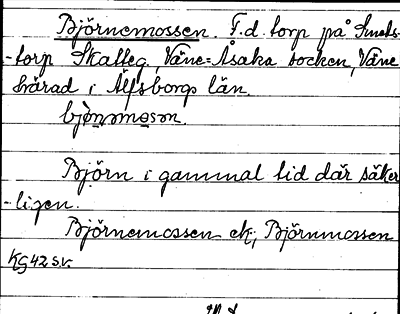 Björnemossen. F.d. torp på Smeds-
-torp Skatteg, Väne-Åsaka socken, Väne
härad i Älfsborgs län.
bjö̀nəmɔsən.
Björn i gammal tid där säker
-ligen.
Björnemossen ek; Björnmossen
KG42 s.v.